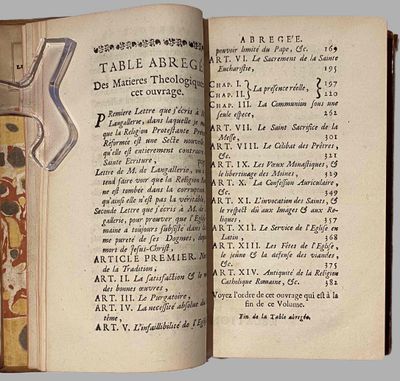 TABLE ABREGÉ
Des Matieres Theologiques
cet ouvrage.
PRemiere Lettre que j'écris à M
Langallerie, dans laquelle je
que la Religion Protestante Pré
Réformée est une Secte nouvell
qu'elle est entierement contraire
Sainte Ecriture,
Lettre de M. de Langallerie, où
tend faire voir que la Religion
ne est tombée dans la corruption
qu'ainsi elle n'est pas la véritable,
Seconde Lettre que j'écris à M. de
gallerie, pour prouver que l'Egli
maine a toujours subsisté dans la
me pureté de ses Dogmes, depu
mort de Jesus-Christ,
ARTICLE PREMIER.
de la Tradition,
ART. II. La satisfaction & le
des bonnes œuvres,
ART. III. Le Purgatoire,
ART. IV. La necessité absolue du
tême,
ART. V. L'infaillibilité de l'Egl
ABREGÉE.
pouvoir limité du Pape, &c. 169
ART. VI. Le Sacrement de la Sainte
Eucharistie, 195
CHAP. I. } La presence réelle, { 197
CHAP. II. } { 120
CHAP. III. La Communion sous une
seule espece, 262
ART. VII. Le Saint Sacrifice de la
Messe, 301
ART. VIII. Le Célibat des Prêtres,
&c. 321
ART. IX. Les Vœux Monastiques, &
le libertinage des Moines, 329
ART. X. La Confession Auriculaire,
&c. 349
ART. XI. L'invocation des Saints, &
le respect dû aux Images & aux Re-
liques, 357
ART. XII. Le Service de l'Eglise en
Latin, 368
ART. XIII. Les Fêtes de l'Eglise,
le jeûne & la defense des viandes,
&c. 375
ART. XIV. Antiquité de la Religion
Catholique Romaine, &c. 382
Voyez l'ordre de cet ouvrage qui est à la
fin de ce Volume.
Fin de la Table abregée.